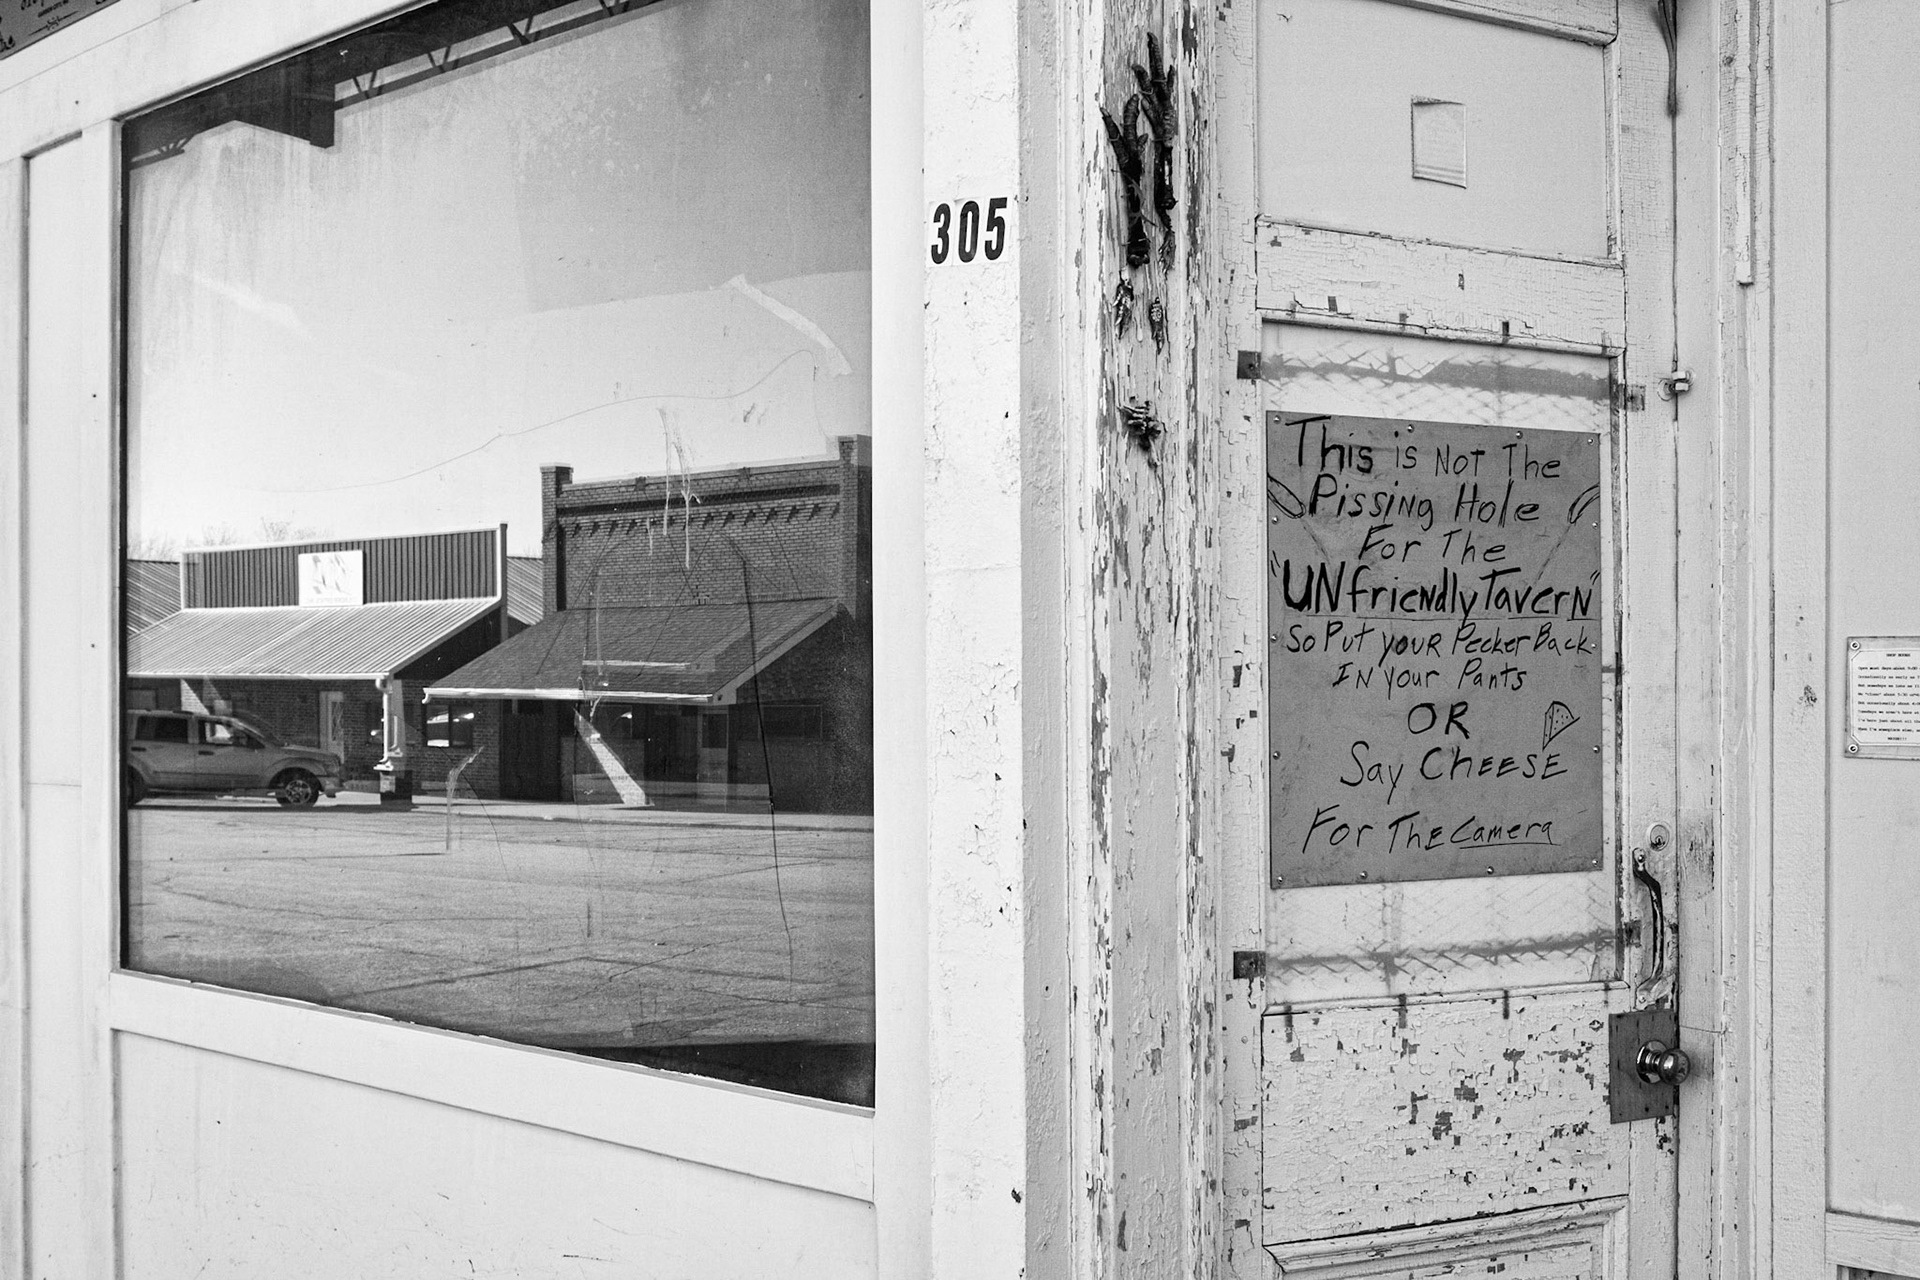 305
This is Not The
Pissing Hole
For The
"UNfriendly Tavern"
So Put your Pecker Back
IN your Pants
OR
Say CHEESE
For The Camera
SHOP HOURS